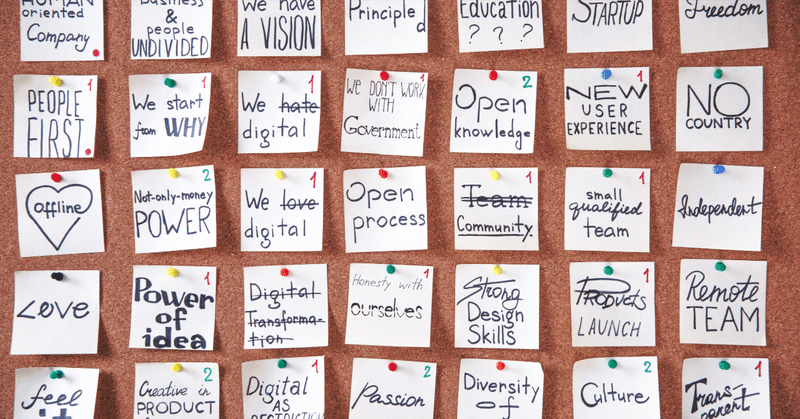 HUMAN
oriented
Company.
Business
&
people
UNDIVIDED
We have
A VISION
Principled
Education
? ? ?
STARTUP
Freedom
PEOPLE
FIRST.
1
We start
from WHY
1
We hate
digital
1
We DON'T WORK
WITH
Government
1
Open
knowledge
2
NEW
USER
EXPERIENCE
1
NO
COUNTRY
offline
Not-only-money
POWER
2
We love
digital
1
Open
process
Team
Community.
1
small
qualified
team
1
Independent
Love
Power
of
idea
1
Digital
Transforma-
tion
1
Honesty with
ourselves
1
Strong
Design
Skills
Products
LAUNCH
1
Remote
TEAM
feel
it
Creative in
PRODUCT
2
Digital
AS
RESTRICTION
1
Passion
2
Diversity
of
Culture
2
Trans-
parent
1